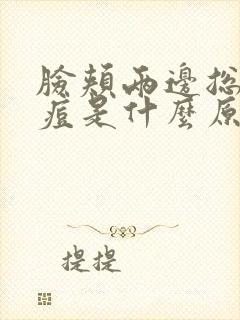 臉頰兩邊總
痘是什麼原
提提